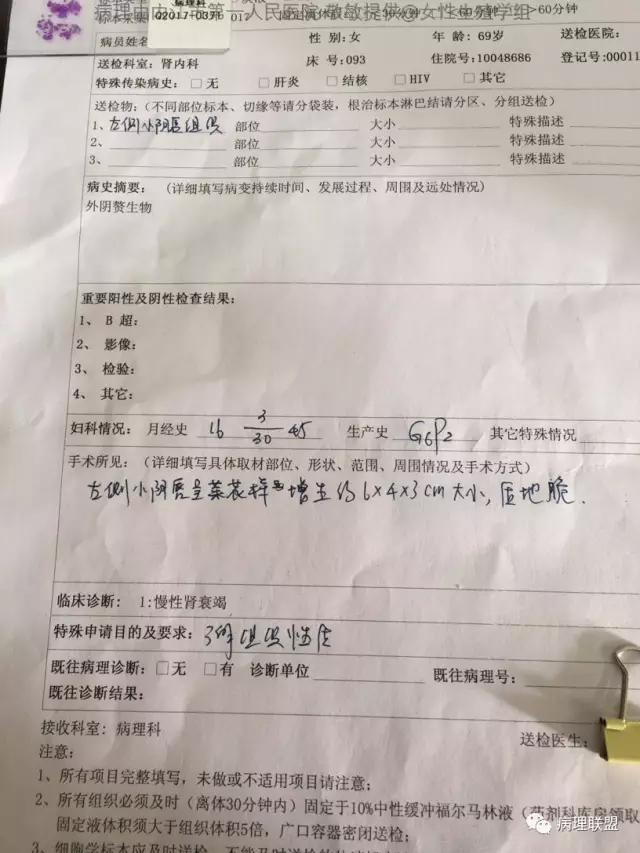 病理科
Q2017-0376
>60分钟
病员姓名 性 别:女 年 龄: 69岁 送检医院:
送检科室: 肾内科 床 号:093 住院号:10048686 登记号:00011
特殊传染病史: □ 无 □ 肝炎 □ 结核 □ HIV □ 其它
送检物:(不同部位标本、切缘等请分袋装,根治标本淋巴结请分区、分组送检)
1、左侧小阴唇组织 部位 大小 特殊描述
2、 部位 大小 特殊描述
3、 部位 大小 特殊描述
病史摘要: (详细填写病变持续时间、发展过程、周围及远处情况)
外阴赘生物
重要阳性及阴性检查结果:
1、 B 超:
2、 影像:
3、 检验:
4、 其它:
妇科情况: 月经史 16 3/30 45 生产史 G6P2 其它特殊情况
手术所见:(详细填写具体取材部位、形状、范围、周围情况及手术方式)
左侧小阴唇呈菜花样增生约6×4×3cm大小,质地脆.
临床诊断: 1:慢性肾衰竭
特殊申请目的及要求: 了解组织性质
既往病理诊断:□无 □有 诊断单位 既往病理号:
既往诊断结果:
接收科室: 病理科 送检医生:
注意:
1、所有项目完整填写,未做或不适用项目请注意;
2、所有组织必须及时(离体30分钟内)固定于10%中性缓冲福尔马林液(药剂科库房领取
固定液体积须大于组织体积5倍,广口容器密闭送检;
3、细胞学标本应及时送检
病理联盟